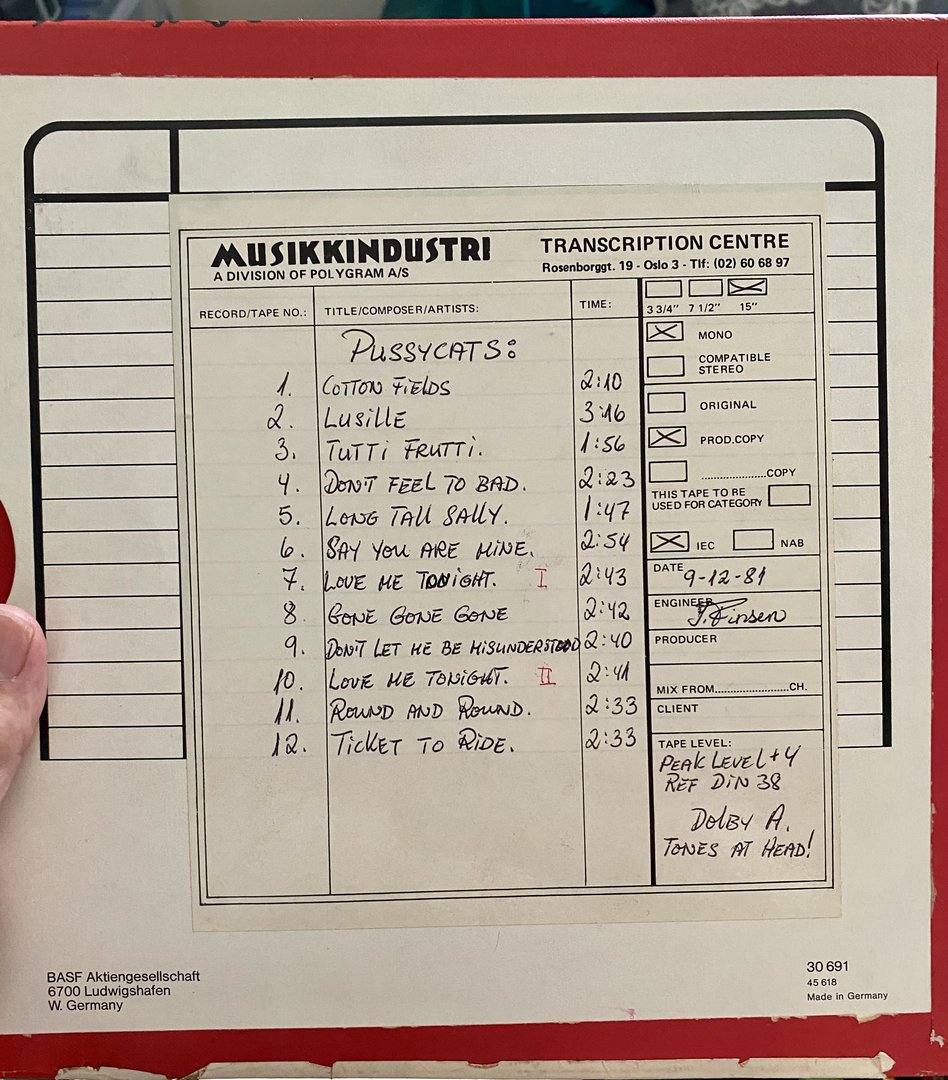 MUSIKKINDUSTRI
A DIVISION OF POLYGRAM A/S
TRANSCRIPTION CENTRE
Rosenborggt. 19 - Oslo 3 - Tlf: (02) 60 68 97
RECORD/TAPE NO.: TITLE/COMPOSER/ARTISTS: TIME:
PUSSYCATS:
1. COTTON FIELDS 2:10
2. LUSILLE 3:16
3. TUTTI FRUTTI. 1:56
4. DON'T FEEL TO BAD. 2:23
5. LONG TALL SALLY. 1:47
6. SAY YOU ARE MINE. 2:54
7. LOVE ME TONIGHT. I 2:43
8. GONE GONE GONE 2:42
9. DON'T LET ME BE MISUNDERSTOOD 2:40
10. LOVE ME TONIGHT. II 2:41
11. ROUND AND ROUND. 2:33
12. TICKET TO RIDE. 2:33
3 3/4" 7 1/2" 15"
MONO
COMPATIBLE
STEREO
ORIGINAL
PROD.COPY
....................COPY
THIS TAPE TO RE
USED FOR CATEGORY
IEC NAB
DATE 9-12-81
ENGINEER
PRODUCER
MIX FROM.......................CH.
CLIENT
TAPE LEVEL:
PEAK LEVEL +4
REF DIN 38
DOLBY A.
TONES AT HEAD!
BASF Aktiengesellschaft
6700 Ludwigshafen
W. Germany
30 691
45 618
Made in Germany